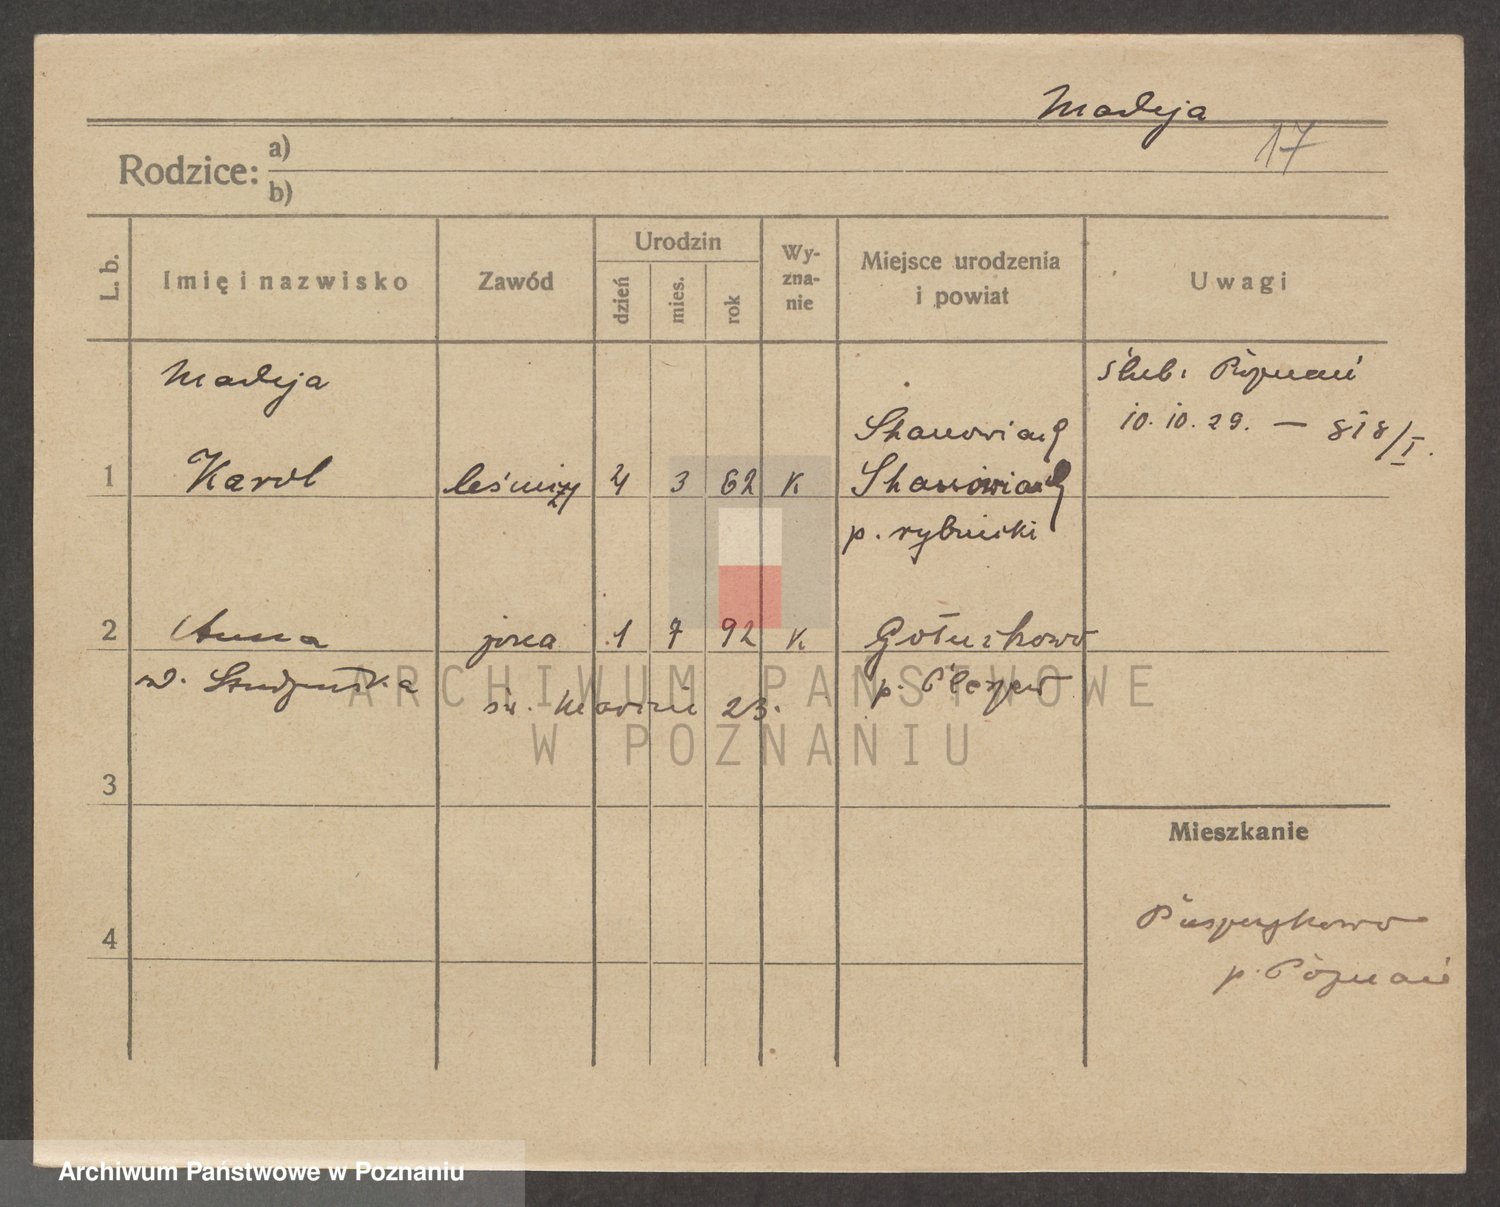 Madeja
17
Rodzice: a)
b)
L. b.
Imię i nazwisko
Zawód
Urodzin
dzień
mies.
rok
Wy-
zna-
nie
Miejsce urodzenia
i powiat
Uwagi
Madeja
ślub. Poznań
10. 10. 29. — 818/I.
1 Karol leśniczy 4 3 62 K
p. rybnicki
2 Anna żona 1 7 92 K Gołuchowo
św. Marcin 23.
p. Pleszew
3
4
Mieszkanie
Puszczykowo
p. Poznań
ARCHIWUM PAŃSTWOWE
W POZNANIU
Archiwum Państwowe w Poznaniu